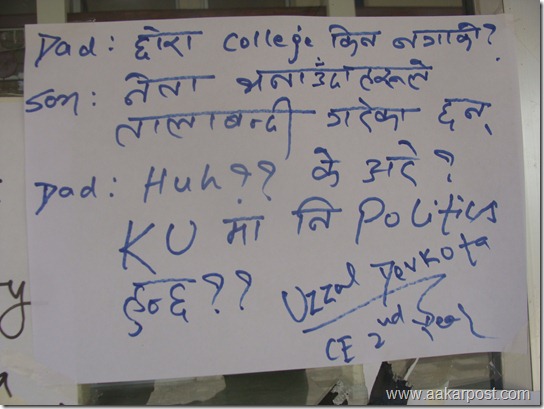 Dad: छोरा College किन नगाको?
Son: नेता भनाउँदाहरूले
तालाबन्दी गरेका छन्
Dad: Huh?? के अरे?
KU मा नि Politics
हुन्छ??
Uzzal Devkota
CE 2nd Year
y
www.aakarpost.com